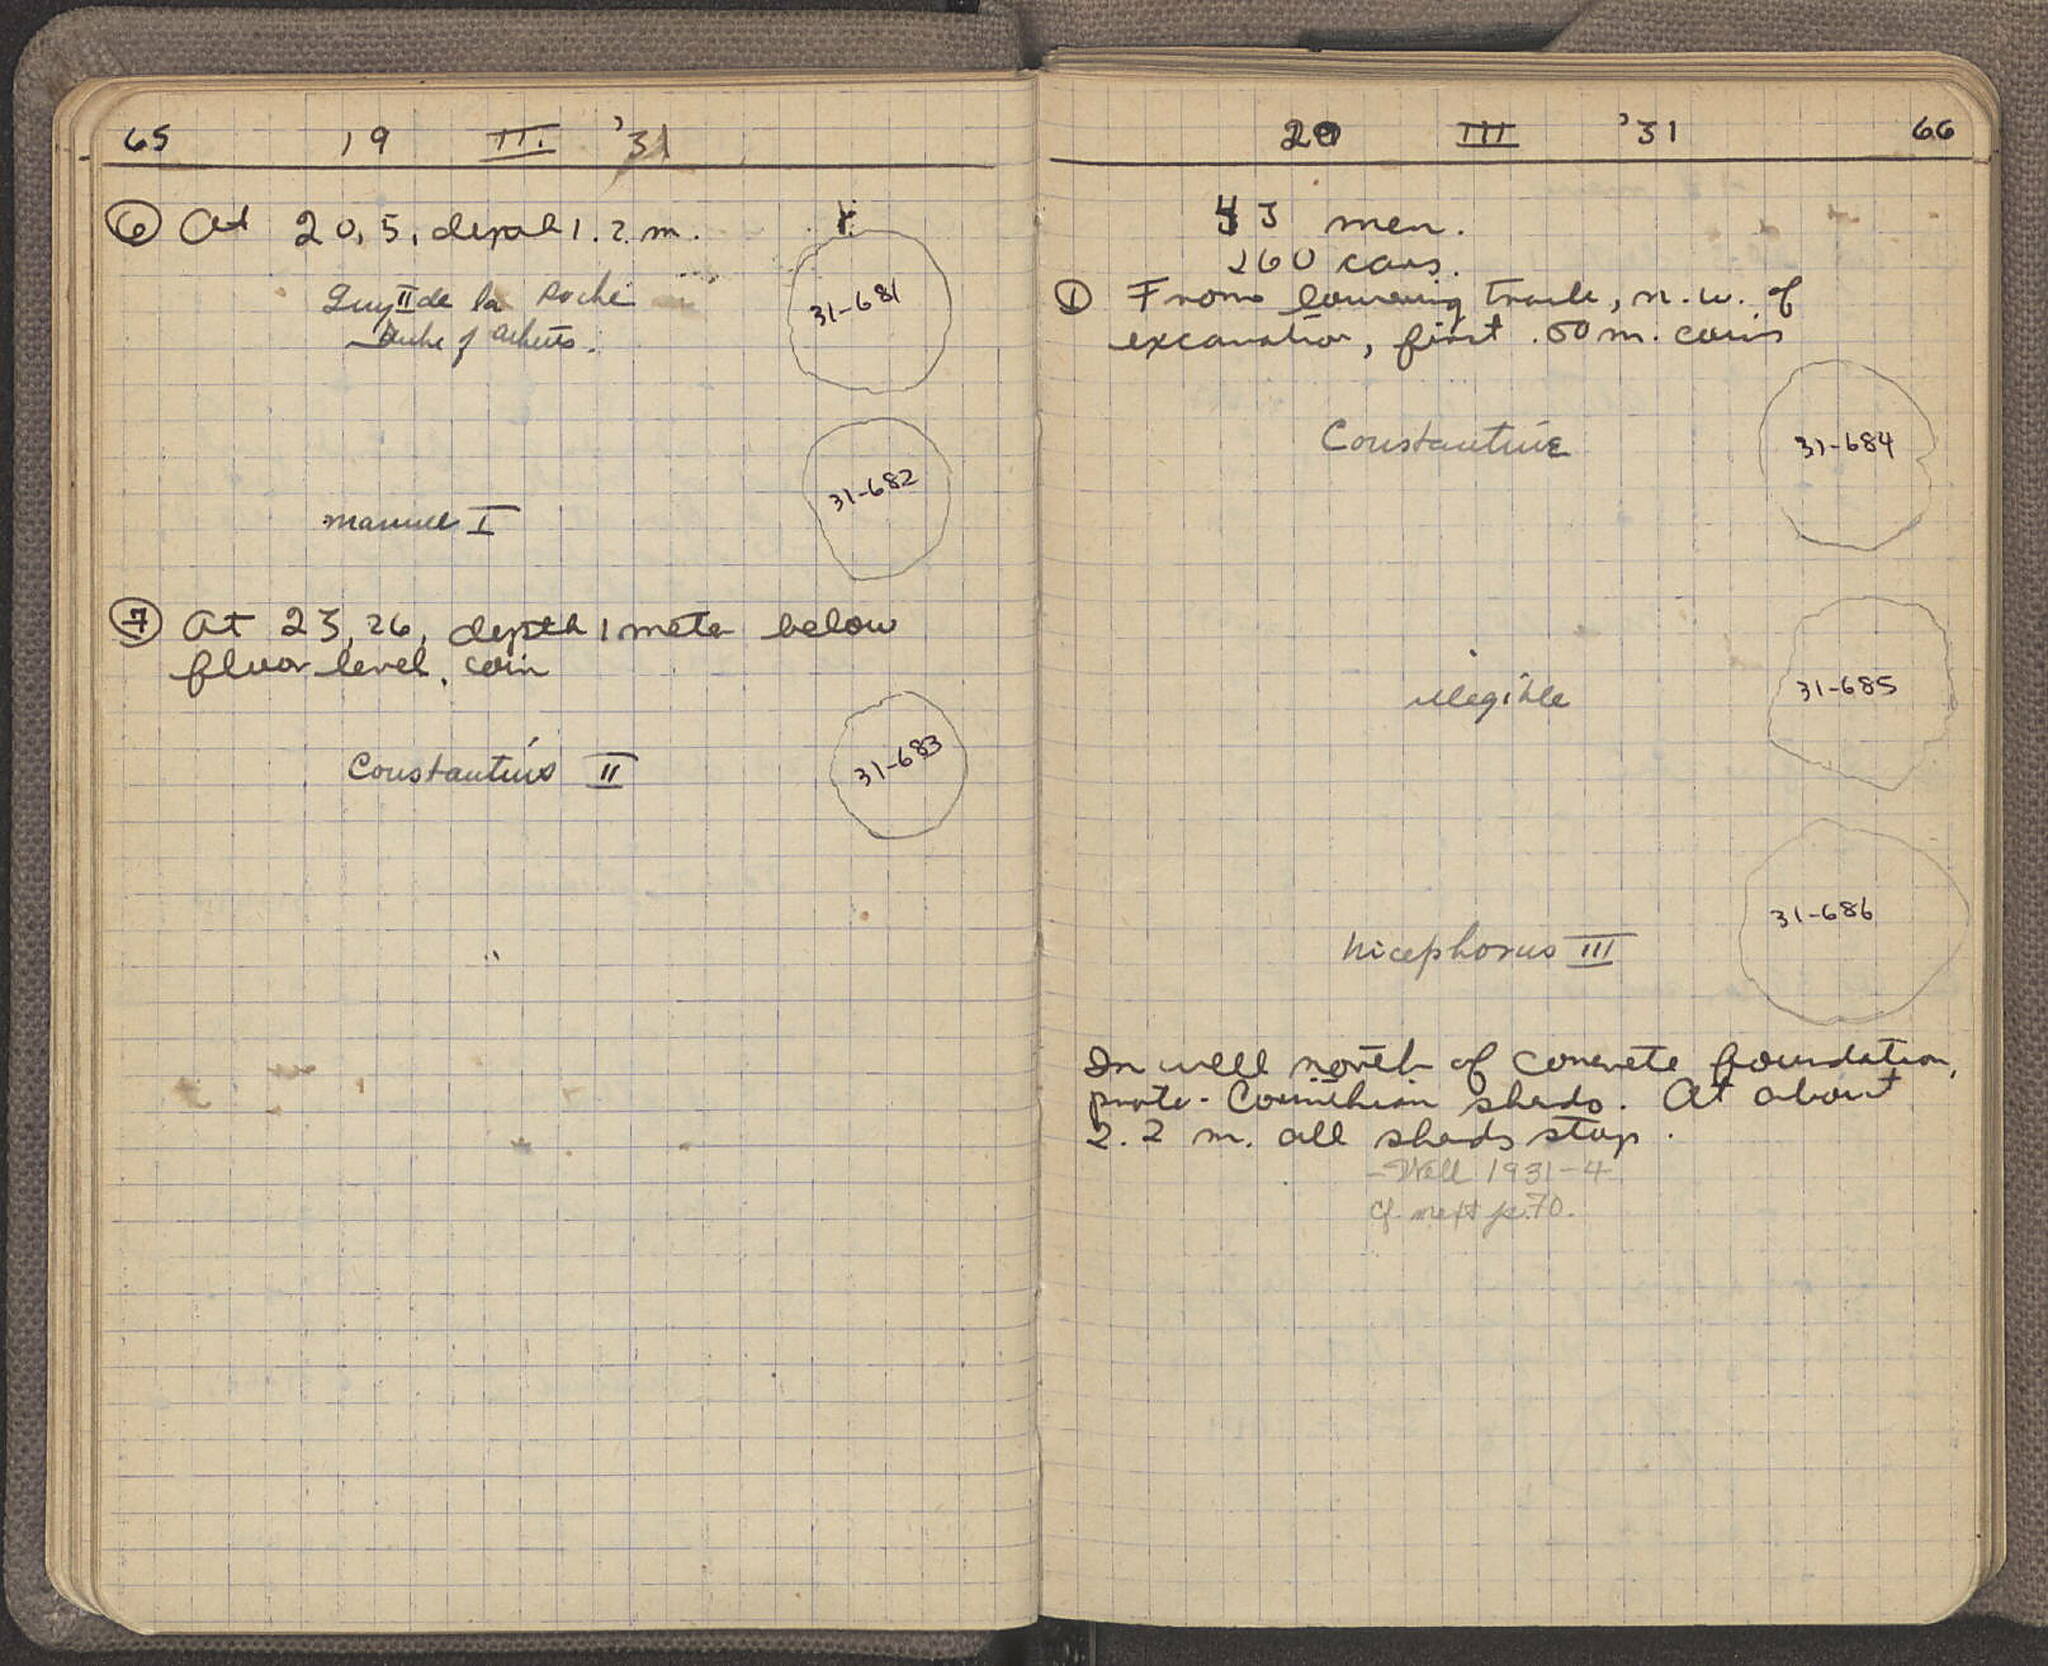 65 19 III. '31
⑥ At 20, 5, depth 1.2 m.
31-681
Guy II de la Roche
Duke of Athens.
31-682
Manuel I
⑦ At 23, 26, depth 1 meter below
floor level, coin
31-683
Constantius II
20 III '31 66
43 men.
260 cars.
① From lowering track, n.w. of
excavation, first .50 m. coins
Constantine
31-684
illegible
31-685
31-686
Nicephorus III
In well north of concrete foundation,
proto-Corinthian sherds. At about
2.2 m. all sherds stop.
- Well 1931-4
cf. next p. 70.